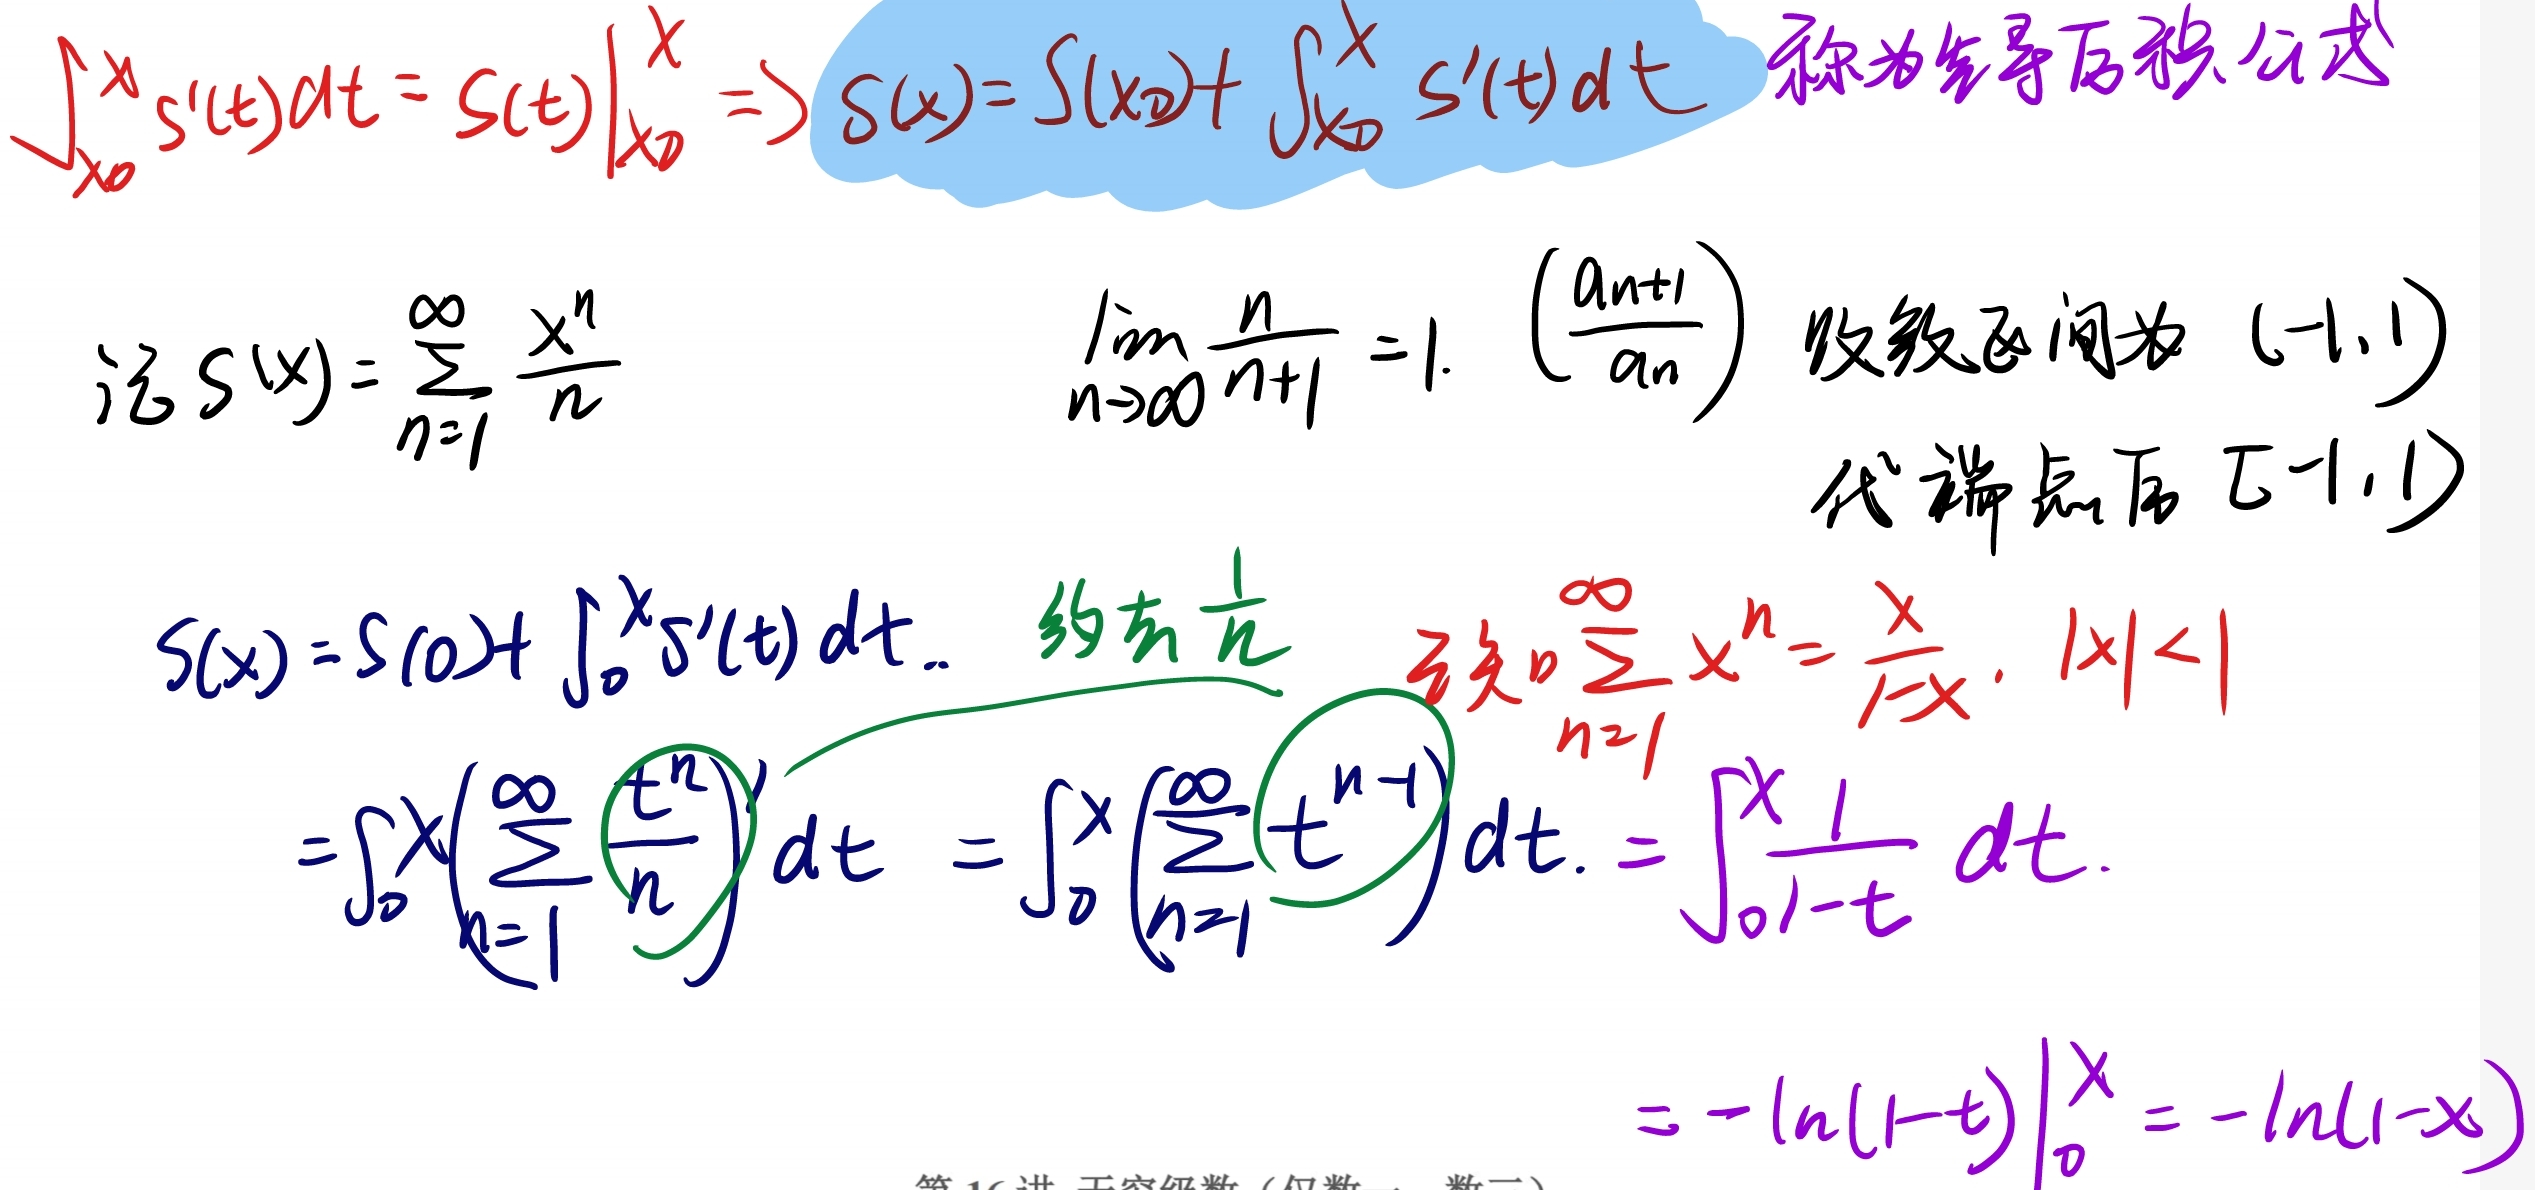 ∫_{x₀}^{x} s'(t)dt = S(t)|_{x₀}^{x} => S(x) = S(x₀) + ∫_{x₀}^{x} S'(t)dt 称为先导后积公式
记 S(x) = ∑_{n=1}^{∞} x^n/n lim_{n→∞} n/(n+1) = 1. (a_{n+1}/a_n) 收敛区间为 (-1,1)
代端点后 [-1,1)
S(x) = S(0) + ∫_0^x S'(t)dt.. 约去 1/n ∑_{n=1}^{∞} x^n = x/(1-x). |x|<1
= ∫_0^x (∑_{n=1}^{∞} t^n/n)' dt = ∫_0^x (∑_{n=1}^{∞} t^{n-1}) dt. = ∫_0^x 1/(1-t) dt.
= -ln(1-t)|_0^x = -ln(1-x)
第 16 讲 无穷级数（仅数一、数三）